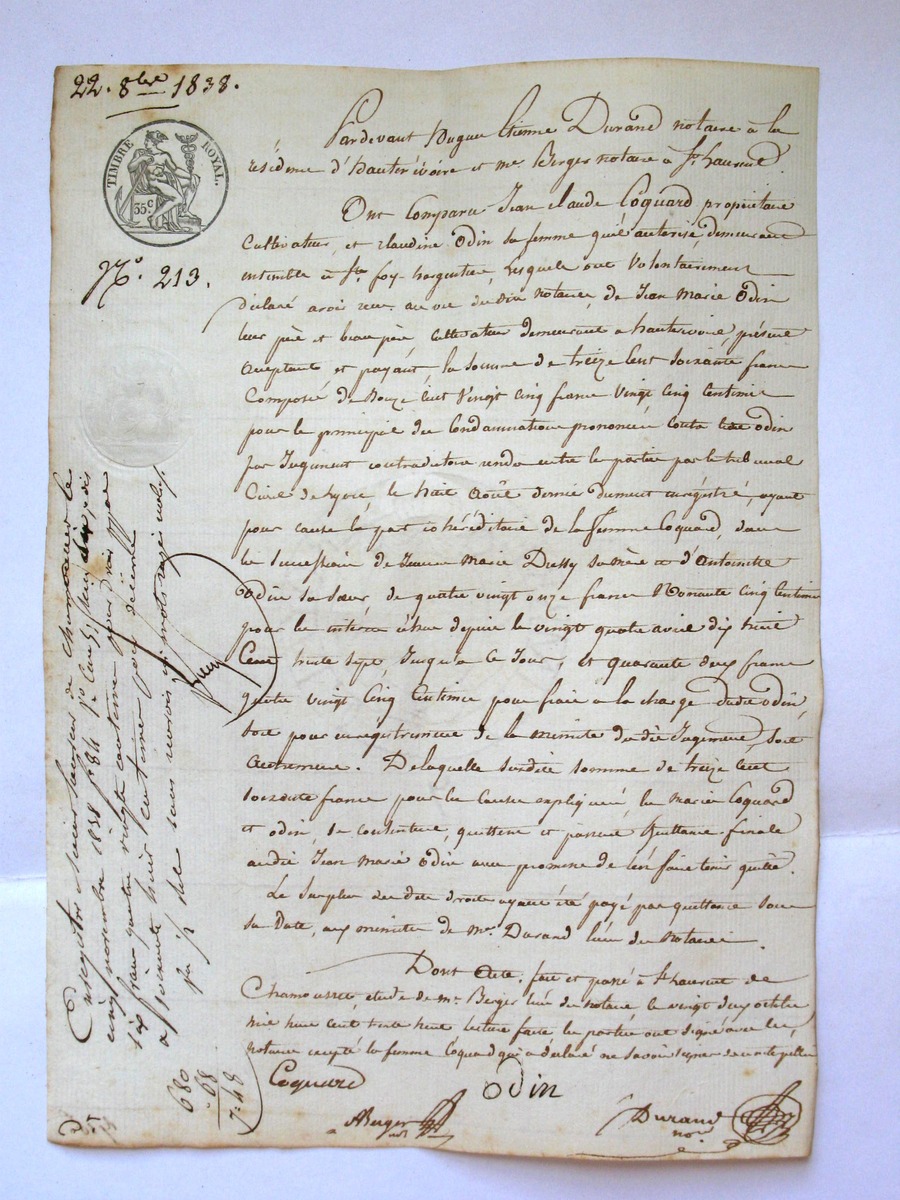 22. 8bre 1838.
TIMBRE ROYAL.
35.c
No. 213.
Pardevant Hugue Etienne Durand notaire à la
résidence d'hauterivoire et me. Berger notaire à St. Laurent.
Ont Comparu Jean Claude Coquard propriétaire
Cultivateur, et Claudine Odin sa femme qu'il autorise, demeurant
ensemble à Ste. foy-largentière, lesquels ont volontairement
déclaré avoir reçu au vu desdits notaires, de Jean Marie Odin
leur père et beau père, cultivateur demeurant a hauterivoire, présent
acceptant et payant, la somme de treize cent soixante francs
Composé de Douze cent vingt cinq francs vingt cinq centimes
pour le principal des Condamnations prononcées contre led. odin
par Jugement contradictoire rendu entre les parties par le tribunal
Civil de Lyon, le huit Août dernier dument enrégistré, ayant
pour cause la part cohéréditaire de la femme Coquard, dans
les successions de Jeanne Marie Dussy sa mère et d'Antoinette
Odin sa sœur, de quatre vingt onze francs Nonante cinq centimes
pour les intérêts échus depuis le vingt quatre avril dix huit
Cent trente sept, Jusqu'à ce Jour, Et quarante deux francs
quatre vingt cinq centimes pour frais à la charge dudit odin,
soit pour enrégistrement de la minute dudit Jugement, soit
autrement. De laquelle susdite somme de treize cent
soixante francs pour les causes expliquées, les mariés Coquard
et odin, se contentent, quittent et passent Quittance finale
audit Jean Marie Odin avec promesse de l'en faire tenir quitte.
Le surplus desdits droits ayant été payé par quittance sous
sa date, aux minutes de Me. Durand l'un des Notaires.
Dont Acte. fait et passé à St. Laurent de
Chamousset, étude de Me. Berger l'un des notaires, le vingt deux octobre
mil huit cent trente huit, lecture faite les parties ont signé avec les
notaires excepté la femme Coquard qui a déclaré ne savoir signer de ce interpellée
Coquard
Odin
Berger not
Durand
nore.
Enregistré à Saint Laurent de Chamousset le
cinq novembre 1838 fo. 84 Ro. Case 5, reçu dix
six francs quatre vingt centimes pour droits
et soixante huit centimes pour décime
680
68
7:48